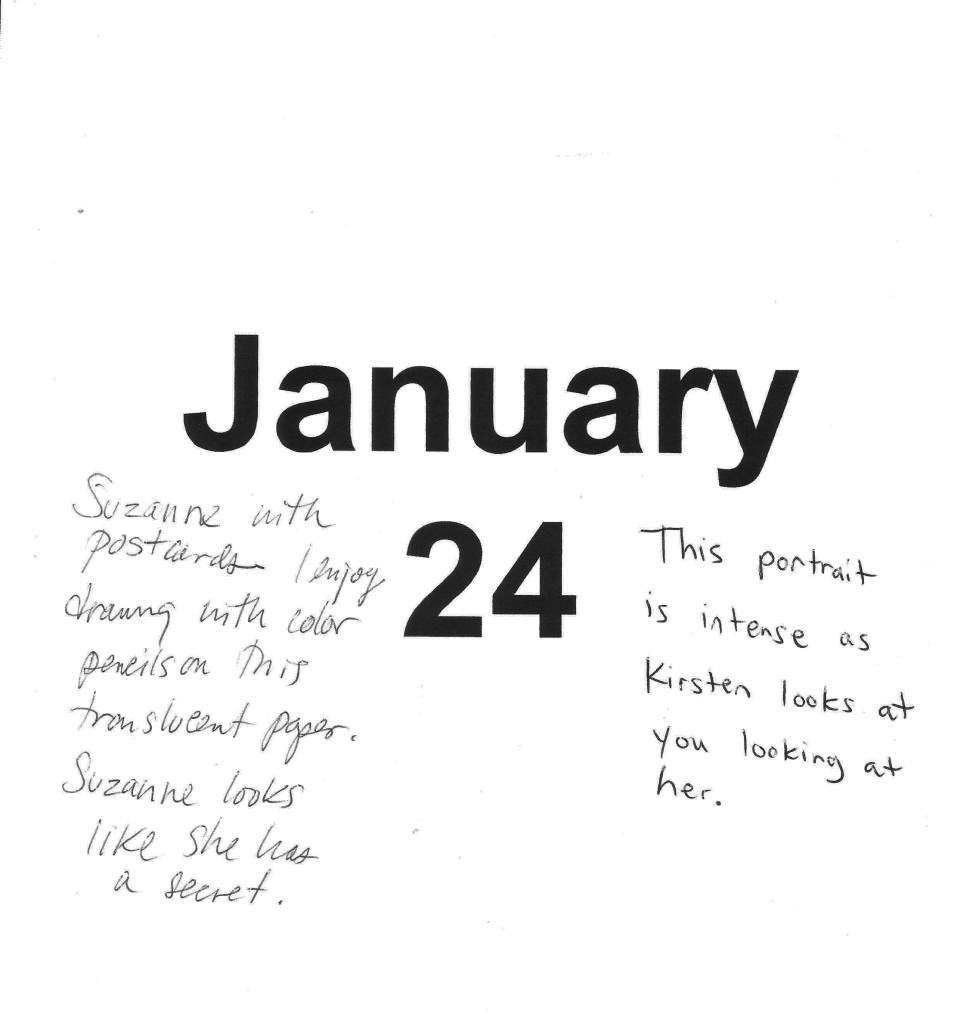 January
24
Suzanne with
postcards I enjoy
drawing with color
pencils on this
translucent paper.
Suzanne looks
like she has
a secret.
This portrait
is intense as
Kirsten looks at
you looking at
her.